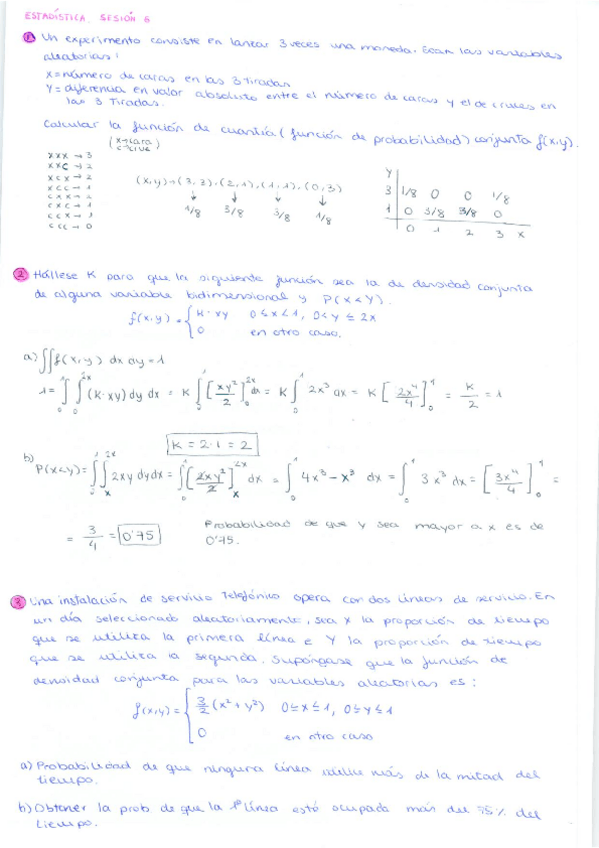 ESTADÍSTICA. SESIÓN 6
① Un experimento consiste en lanzar 3 veces una moneda. Sean las variables
aleatorias:
X = número de caras en las 3 tiradas
Y = diferencia en valor absoluto entre el número de caras y el de cruces en
las 3 tiradas.
Calcular la función de cuantía (función de probabilidad) conjunta f(x,y).
(x→cara
c→cruz)
XXX → 3
XXC → 2
XCX → 2
XCC → 1
CXX → 2
CXC → 1
CCX → 1
CCC → 0
(x,y) → (3,3), (2,1), (1,1), (0,3)
↓ ↓ ↓ ↓
1/8 3/8 3/8 1/8
Y
3 1/8 0 0 1/8
1 0 3/8 3/8 0
0 1 2 3 X
② Hállese K para que la siguiente función sea la de densidad conjunta
de alguna variable bidimensional y P(X<Y).
f(x,y) = { K·xy 0≤x≤1, 0<y≤2x
0 en otro caso.
a) ∫∫f(x,y) dx dy = 1
1 = ∫₀¹ ∫₀²ˣ (K·xy) dy dx = K ∫₀¹ [xy²/2]₀²ˣ dx = K ∫₀¹ 2x³ dx = K [2x⁴/4]₀¹ = K/2 = 1
K = 2·1 = 2
b)
P(x<y) = ∫∫ₓ²ˣ 2xy dy dx = ∫₀¹ [2xy²/2]ₓ²ˣ dx = ∫₀¹ 4x³ - x³ dx = ∫₀¹ 3x³ dx = [3x⁴/4]₀¹ =
= 3/4 = 0'75 Probabilidad de que Y sea mayor a x es de
0'75.
③ Una instalación de servicio telefónico opera con dos líneas de servicio. En
un día seleccionado aleatoriamente, sea X la proporción de tiempo
que se utiliza la primera línea e Y la proporción de tiempo
que se utiliza la segunda. Supóngase que la función de
densidad conjunta para las variables aleatorias es:
f(x,y) = { 3/2 (x² + y²) 0≤x≤1, 0≤y≤1
0 en otro caso
a) Probabilidad de que ninguna línea más de la mitad del
tiempo.
b) Obtener la prob de que la 1ª línea esté ocupada más del 75% del
tiempo.